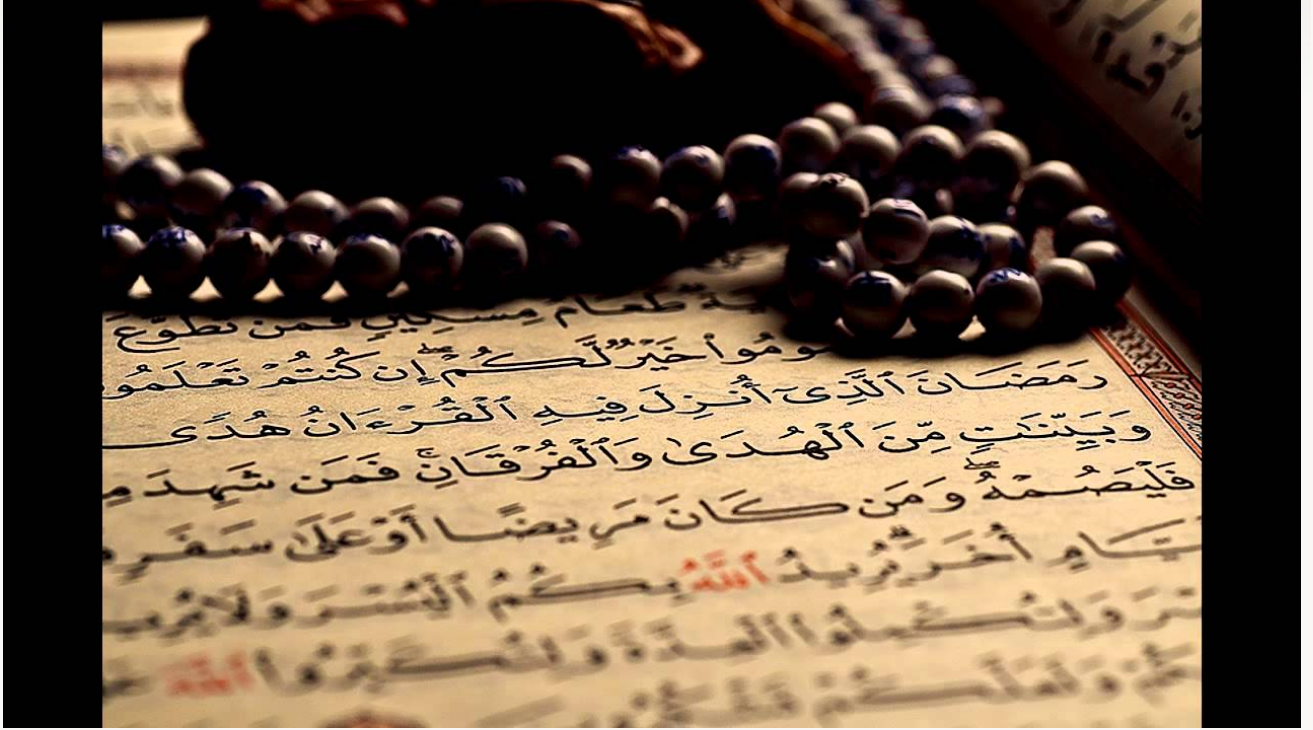 طَعَامُ مِسْكِينٍ فَمَن تَطَوَّعَ
خَيْرٌ لَّكُمْ إِن كُنتُمْ
رَمَضَانَ ٱلَّذِىٓ أُنزِلَ فِيهِ ٱلْقُرْءَانُ هُدًى
وَبَيِّنَٰتٍ مِّنَ ٱلْهُدَىٰ وَٱلْفُرْقَانِ ۚ فَمَن شَهِدَ
فَلْيَصُمْهُ ۖ وَمَن كَانَ مَرِيضًا أَوْ عَلَىٰ سَفَرٍ
أُخَرَ ۗ يُرِيدُ ٱللَّهُ بِكُمُ ٱلْيُسْرَ وَلَا
وَلِتُكْمِلُوا۟ ٱلْعِدَّةَ وَلِتُكَبِّرُوا۟ ٱللَّهَ
وَلَعَلَّكُمْ تَشْكُرُونَ